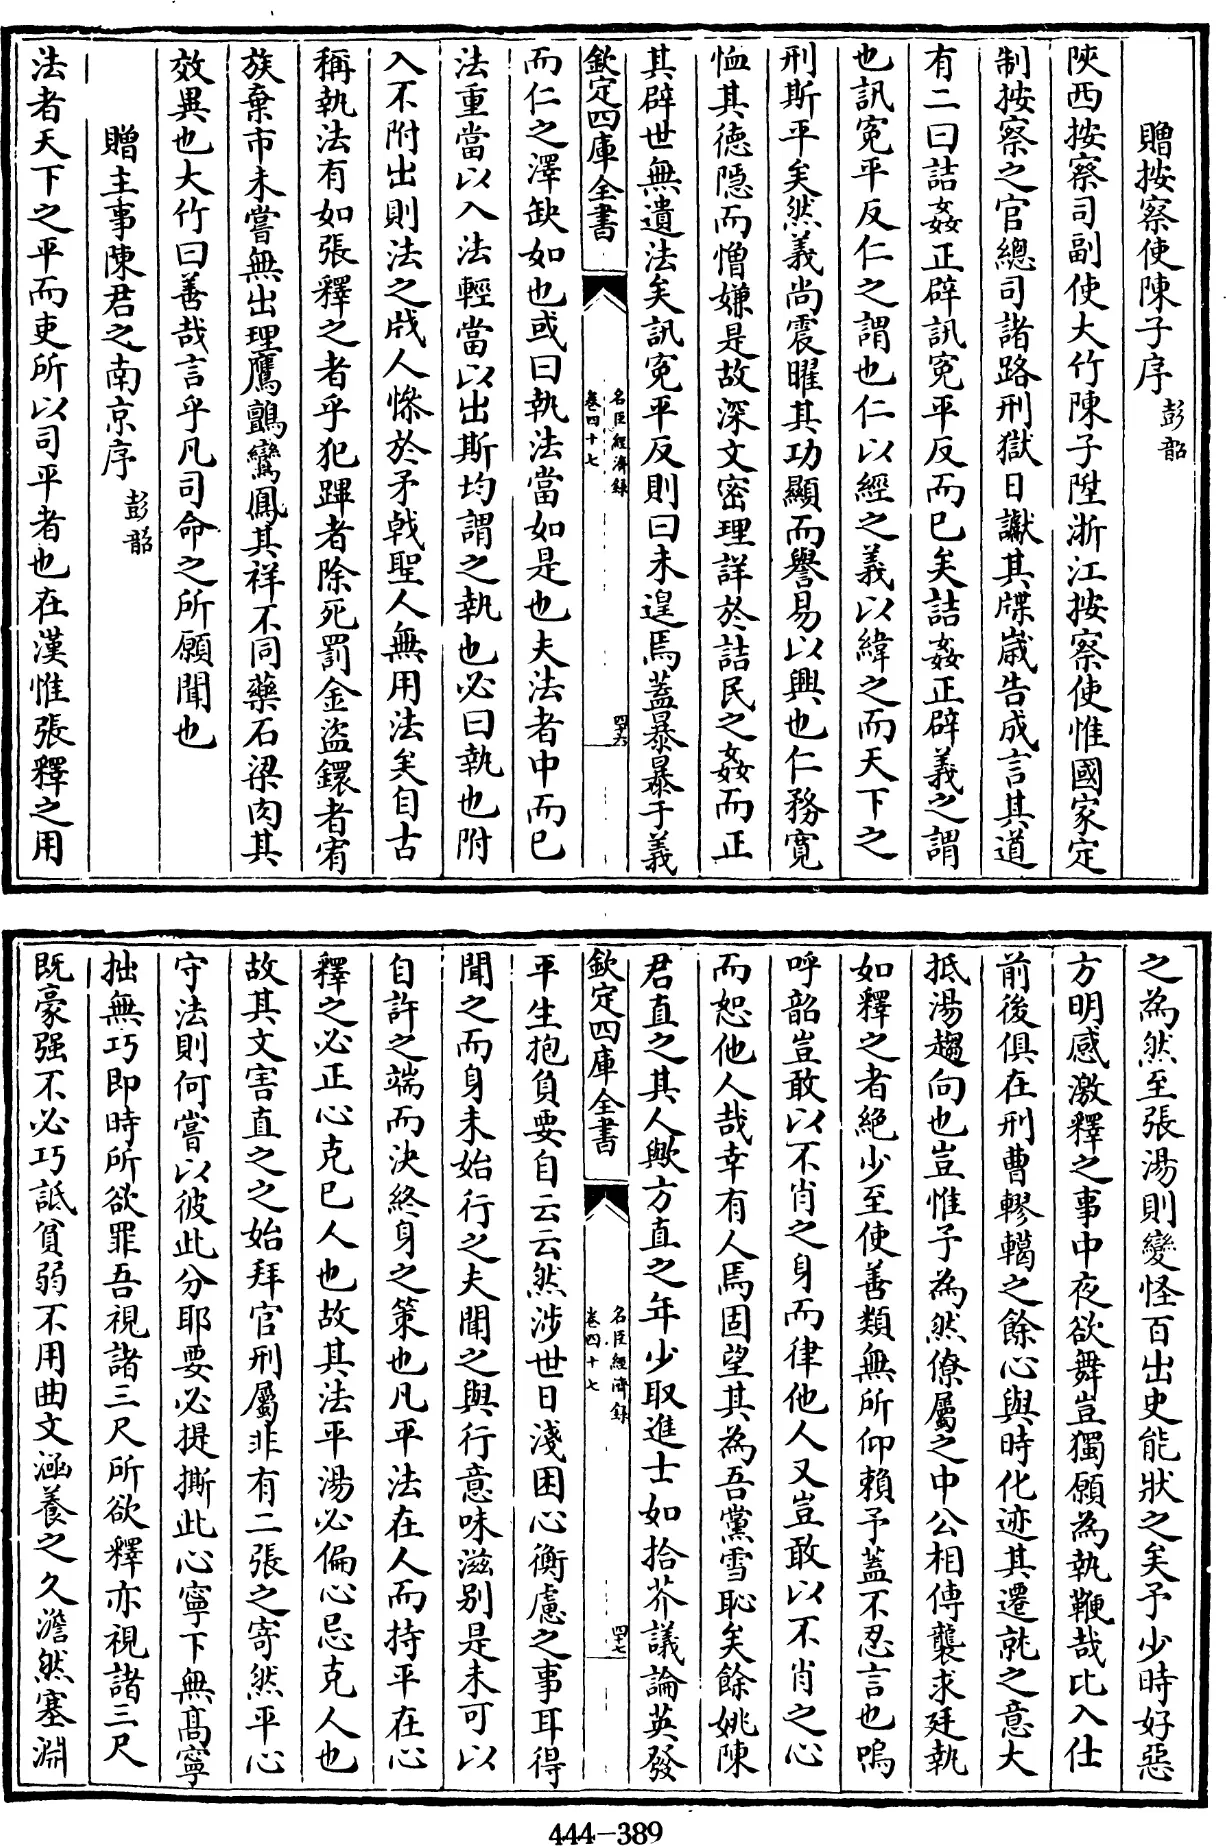 贈按察使陳子序　彭韶
陜西按察司副使大竹陳子陞浙江按察使惟國家定
制按察之官總司諸路刑獄日讞其牒嵗告成言其道
有二曰詰姦正辟訊寃平反而已矣詰姦正辟義之謂
也訊寃平反仁之謂也仁以經之義以緯之而天下之
刑斯平矣然義尚震曜其功顯而譽易以興也仁務寛
恤其徳隠而憎嫌是故深文密理詳於詰民之姦而正
其辟世無遺法矣訊寃平反則曰未遑焉葢暴暴于義
欽定四庫全書
名臣經濟録
卷四十七
四十六
而仁之澤缺如也或曰執法當如是也夫法者中而已
法重當以入法輕當以出斯均謂之執也必曰執也附
入不附出則法之戕人慘於矛戟聖人無用法矣自古
稱執法有如張釋之者乎犯蹕者除死罰金盜鐶者宥
族棄市未嘗無出理鷹鸇鸞鳳其祥不同藥石粱肉其
效異也大竹曰善哉言乎凡司命之所願聞也
贈主事陳君之南京序　彭韶
法者天下之平而吏所以司平者也在漢惟張釋之用
之為然至張湯則變怪百出史能狀之矣予少時好惡
方明感激釋之事中夜欲舞豈獨願為執鞭哉比入仕
前後俱在刑曹轇轕之餘心與時化迹其遷就之意大
抵湯趨向也豈惟予為然僚屬之中公相傳襲求廷執
如釋之者絶少至使善類無所仰賴予葢不忍言也嗚
呼韶豈敢以不肖之身而律他人又豈敢以不肖之心
而恕他人哉幸有人焉固望其為吾黨雪恥矣餘姚陳
君直之其人歟方直之年少取進士如拾芥議論英發
欽定四庫全書
名臣經濟録
卷四十七
四十七
平生抱負要自云云然涉世日淺困心衡慮之事耳得
聞之而身未始行之夫聞之與行意味滋别是未可以
自許之端而決終身之策也凡平法在人而持平在心
釋之必正心克已人也故其法平湯必偏心忌克人也
故其文害直之之始拜官刑屬非有二張之寄然平心
守法則何嘗以彼此分耶要必提撕此心寧下無髙寧
拙無巧即時所欲罪吾視諸三尺所欲釋亦視諸三尺
既豪强不必巧詆貧弱不用曲文涵養之久澹然塞淵
444-389